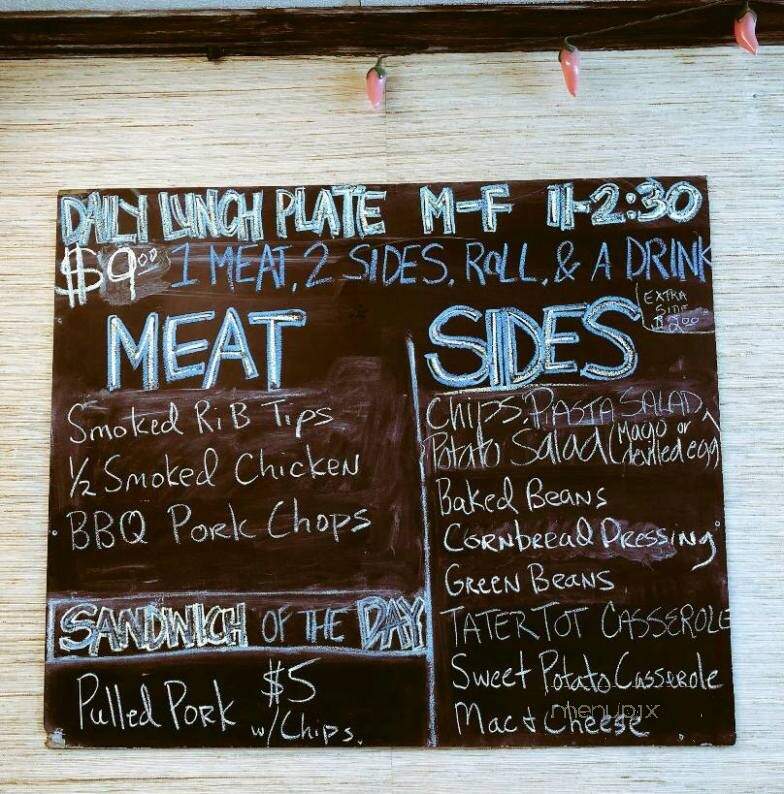 DAILY LUNCH PLATE M-F 11-2:30
$9.00 1 MEAT, 2 SIDES, ROLL, & A DRINK
EXTRA
SIDE
$2.00
MEAT
Smoked RiB Tips
½ Smoked Chicken
BBQ Pork Chops
SANDWICH OF THE DAY
Pulled Pork $5
w/Chips.
SIDES
Chips, PASTA SALAD,
Potato Salad (Mayo or
deviled egg)
Baked Beans
Cornbread Dressing
Green Beans
TATER TOT CASSEROLE
Sweet Potato Casserole
Mac & Cheese
menupix